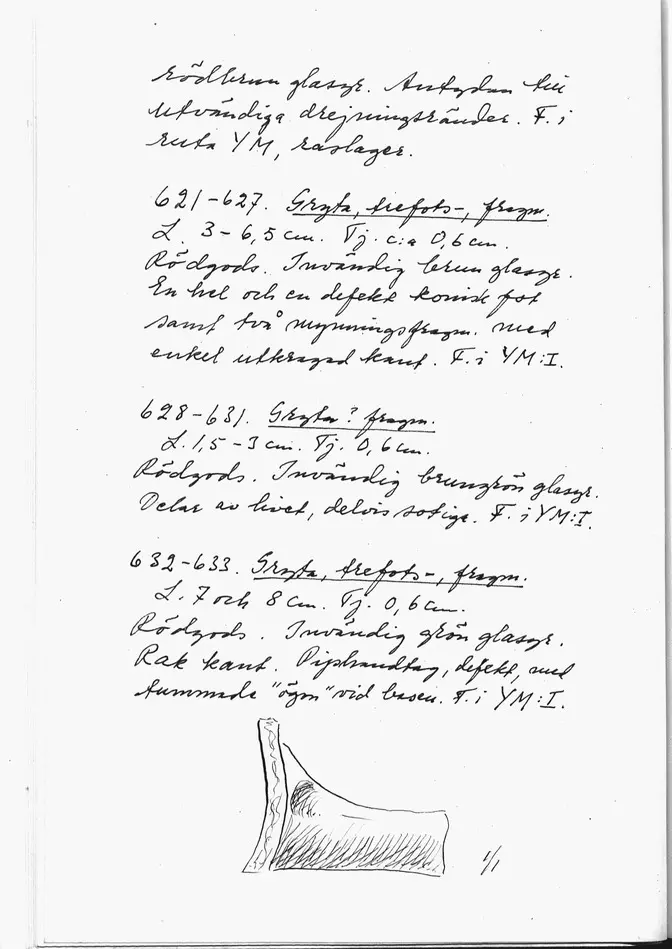 rödbrun glasyr. Antydan till
utvändiga drejningsränder. F. i
ruta YM, raslager.
621-627. Gryta, trefots-, fragm.
L. 3-6,5 cm. Tj. c:a 0,6 cm.
Rödgods. Invändig brun glasyr.
En hel och en defekt konisk fot
samt två mynningsfragm. med
enkel utkragad kant. F. i YM:I.
628-631. Gryta? fragm.
L. 1,5-3 cm. Tj. 0,6 cm.
Rödgods. Invändig brungrön glasyr.
Delar av livet, delvis sotiga. F. i YM:I.
632-633. Gryta, trefots-, fragm.
L. 7 och 8 cm. Tj. 0,6 cm.
Rödgods. Invändig grön glasyr.
Rak kant. Piphandtag, defekt, med
tummade "ögon" vid basen. F. i YM:I.
1/1